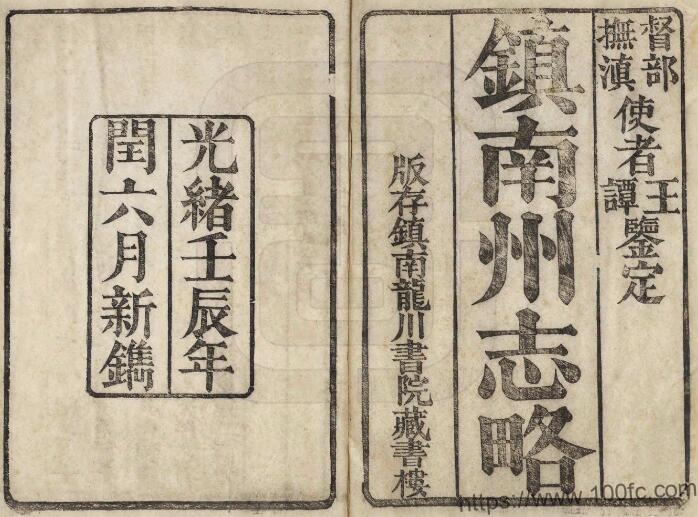 督部
撫滇
使者
王
譚
鑒定
鎮南州志略
版存鎮南龍川書院藏書樓
光緒壬辰年
閏六月新鐫
https://www.100fc.com